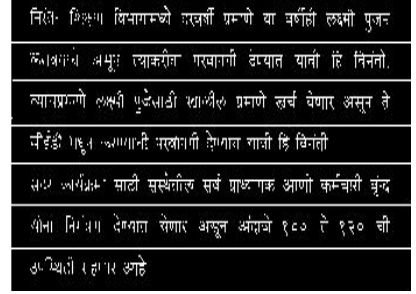 निरंतर शिक्षण विभागामध्ये दरवर्षी प्रमाणे या वर्षीही लक्ष्मी पुजन
करावयाचे असून त्याकरीता परवानगी देण्यात यावी हि विनंती.
त्याचप्रमाणे लक्ष्मी पुजेसाठी खालील प्रमाणे खर्च येणार असून ते
सीईडी मधून करण्याची परवानगी देण्यात यावी हि विनंती
सदर कार्यक्रमा साठी संस्थेतील सर्व प्राध्यापक आणी कर्मचारी वृंन्द
यांना निमंत्रण देण्यात येणार असून अंदाजे १०० ते १२० ची
उपस्थिती राहणार आहे